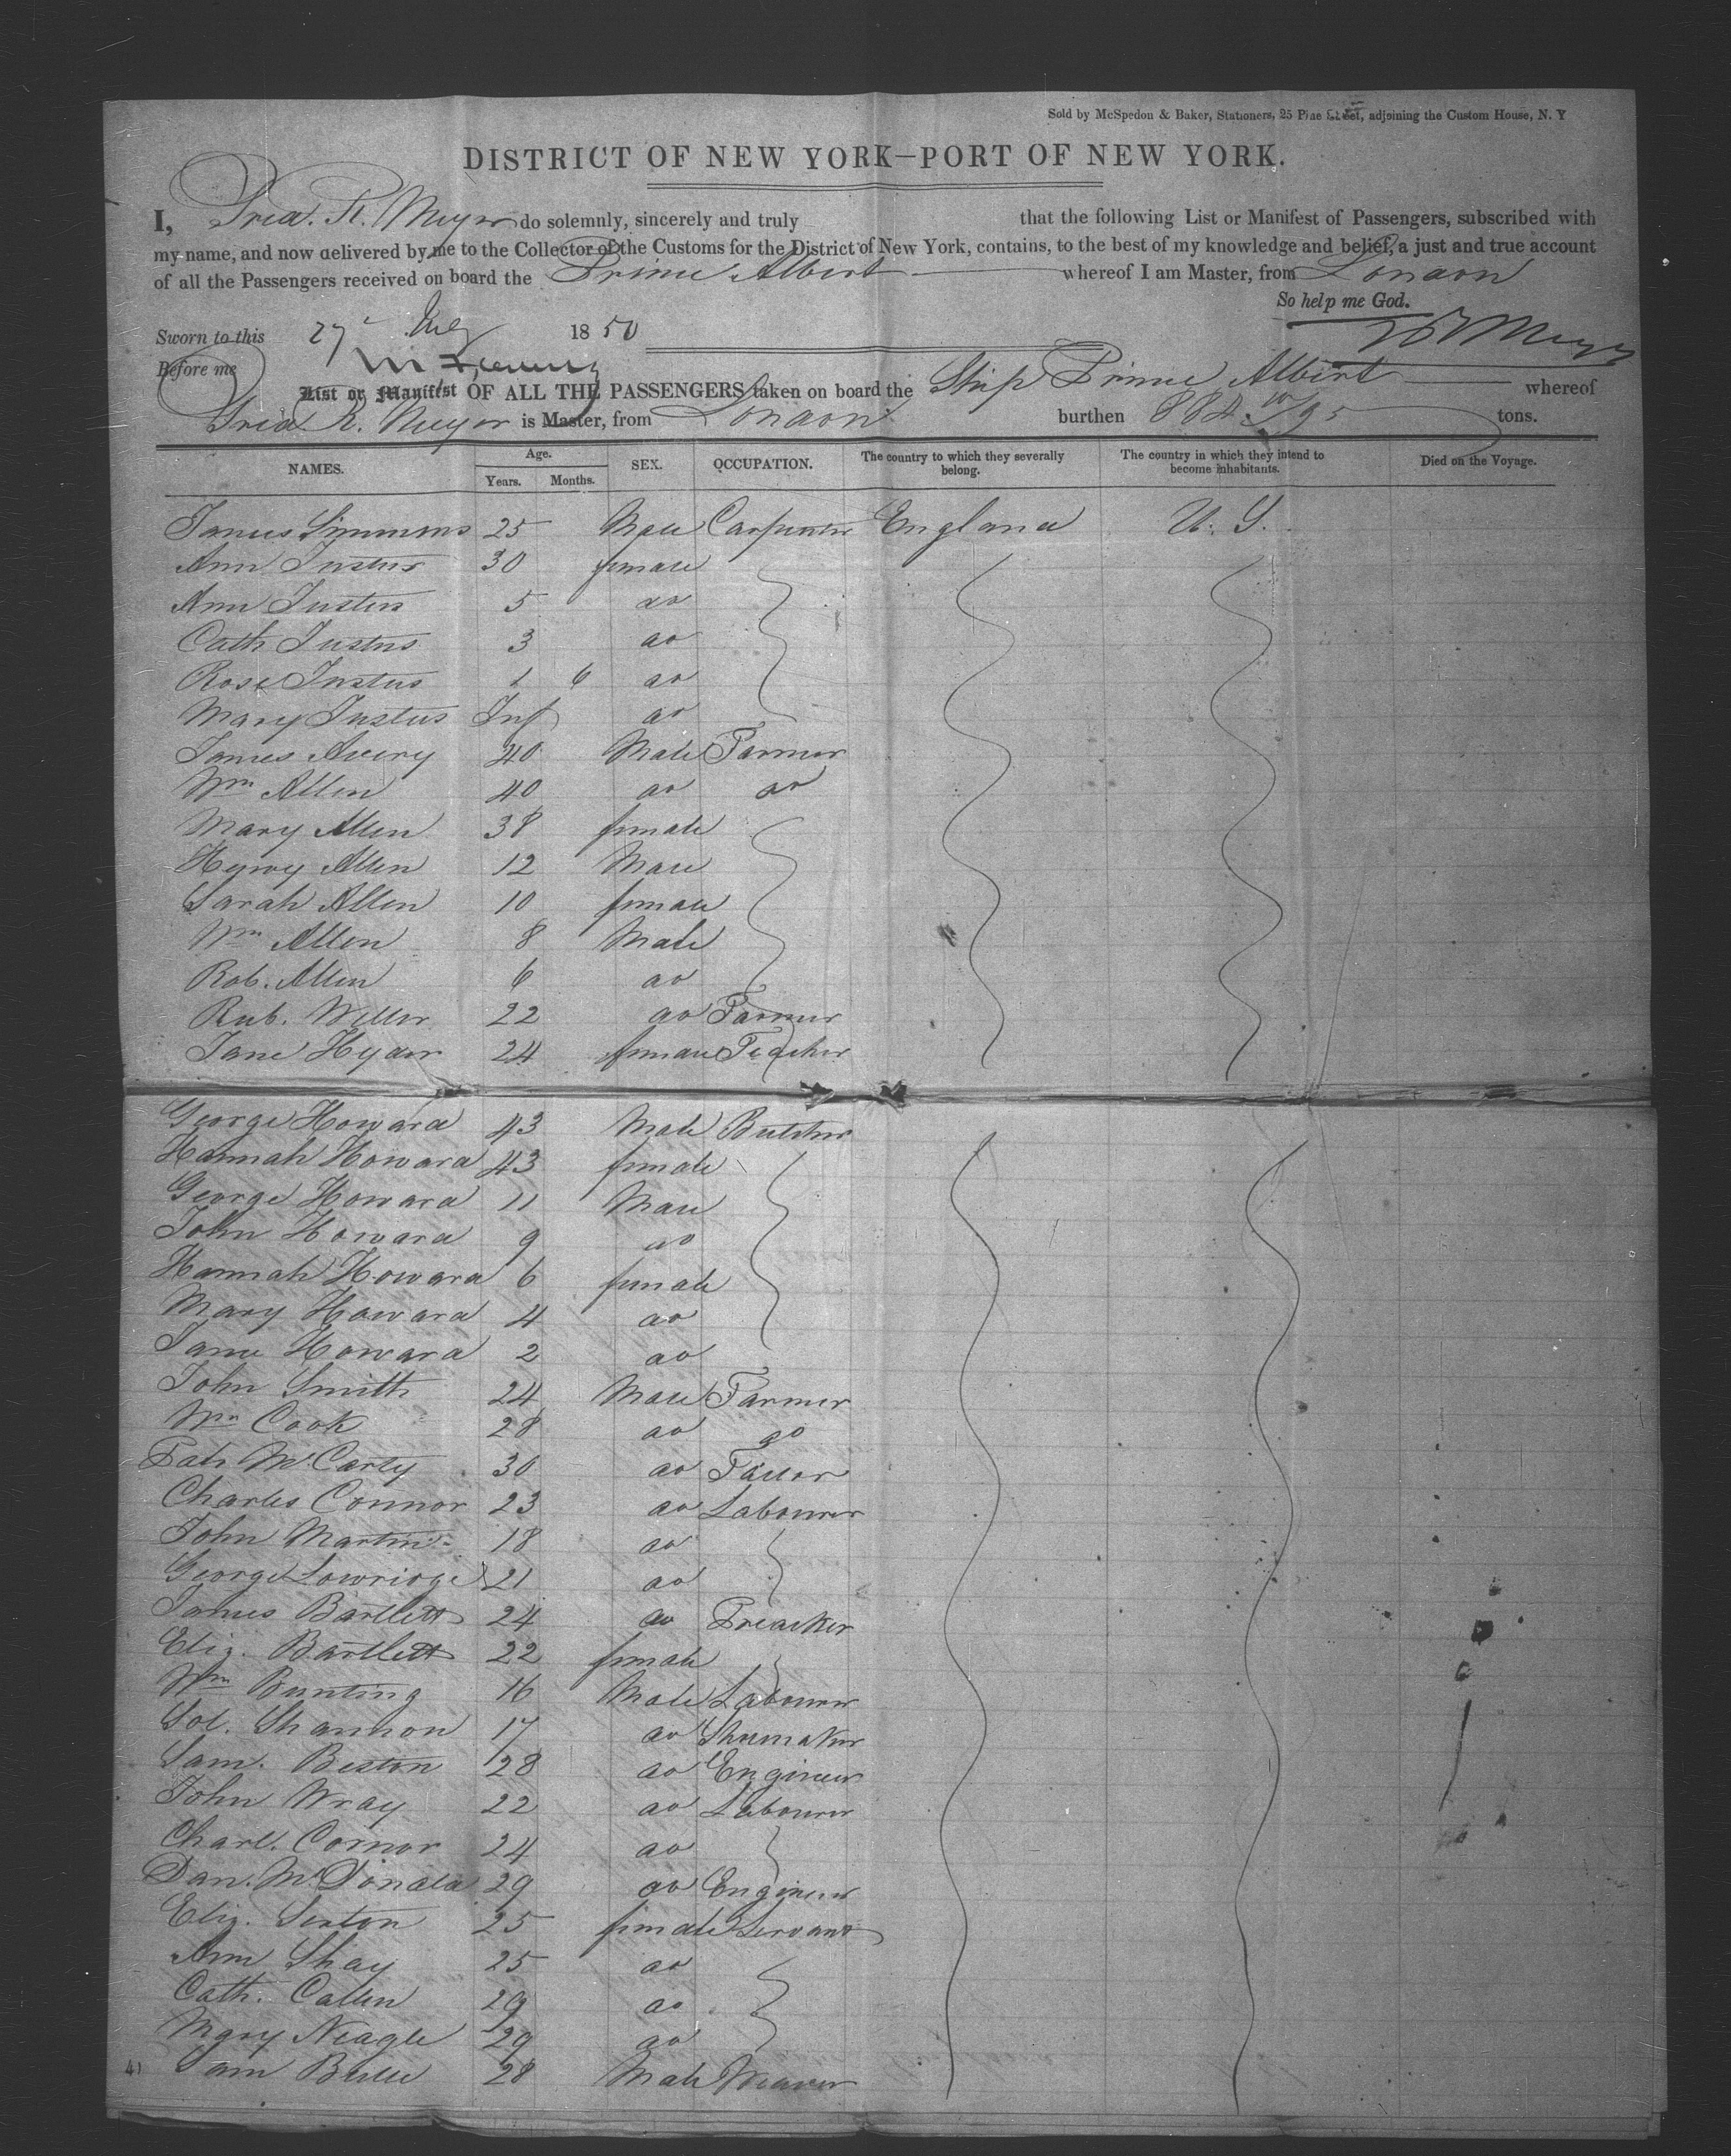 Sold by McSpedon & Baker, Stationers, 25 Pine Street, adjoining the Custom House, N. Y
DISTRICT OF NEW YORK—PORT OF NEW YORK.
I, Fred. R. Meyer do solemnly, sincerely and truly that the following List or Manifest of Passengers, subscribed with
my name, and now delivered by me to the Collector of the Customs for the District of New York, contains, to the best of my knowledge and belief, a just and true account
of all the Passengers received on board the Prince Albert whereof I am Master, from London
So help me God.
Sworn to this 27 1850
Meyer
Before me
List or Manifest OF ALL THE PASSENGERS taken on board the Ship Prince Albert whereof
Fred R. Meyer is Master, from London burthen 884 /95 tons.
NAMES. Age. Years. Months. SEX. OCCUPATION. The country to which they severally belong. The country in which they intend to become inhabitants. Died on the Voyage.
James Simmons 25 Male Carpenter England U. S.
Ann Justus 30 female
Ann Justus 5 do
Cath Justus 3 do
Rose Justus 1 6 do
Mary Justus Inf do
James Avery 40 Male Farmer
Wm Allen 40 do do
Mary Allen 38 female
Henry Allen 12 Male
Sarah Allen 10 female
Wm Allen 8 Male
Rob. Allen 6 do
Rub. Weller 22 do Farmer
Jane Hyam 24 female Teacher
George Howard 43 Male Butcher
Hannah Howard 43 female
George Howard 11 Male
John Howard 9 do
Hannah Howard 6 female
Mary Howard 4 do
Jane Howard 2 do
John Smith 24 Male Farmer
Wm Cook 28 do do
Patr McCarty 30 do Tailor
Charles Connor 23 do Labourer
John Martin 18 do
George Lowridge 21 do
James Bartlett 24 do Preacher
Eliz. Bartlett 22 female
Wm Bunting 16 Male Labourer
Sol. Shannon 17 do Shumaker
Sam. Beston 28 do Engineer
John Wray 22 do Labourer
Charl. Connor 24 do
Dan. McDonald 29 do Engineer
Eliz. Sexton 25 female Servant
Ann Shay 25 do
Cath. Callen 29 do
Mary Neagle 29 do
41 Sam 28 Male Weaver